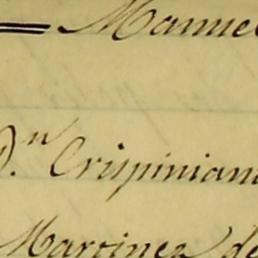 Manuel
D.n Crispiniano
Martinez de